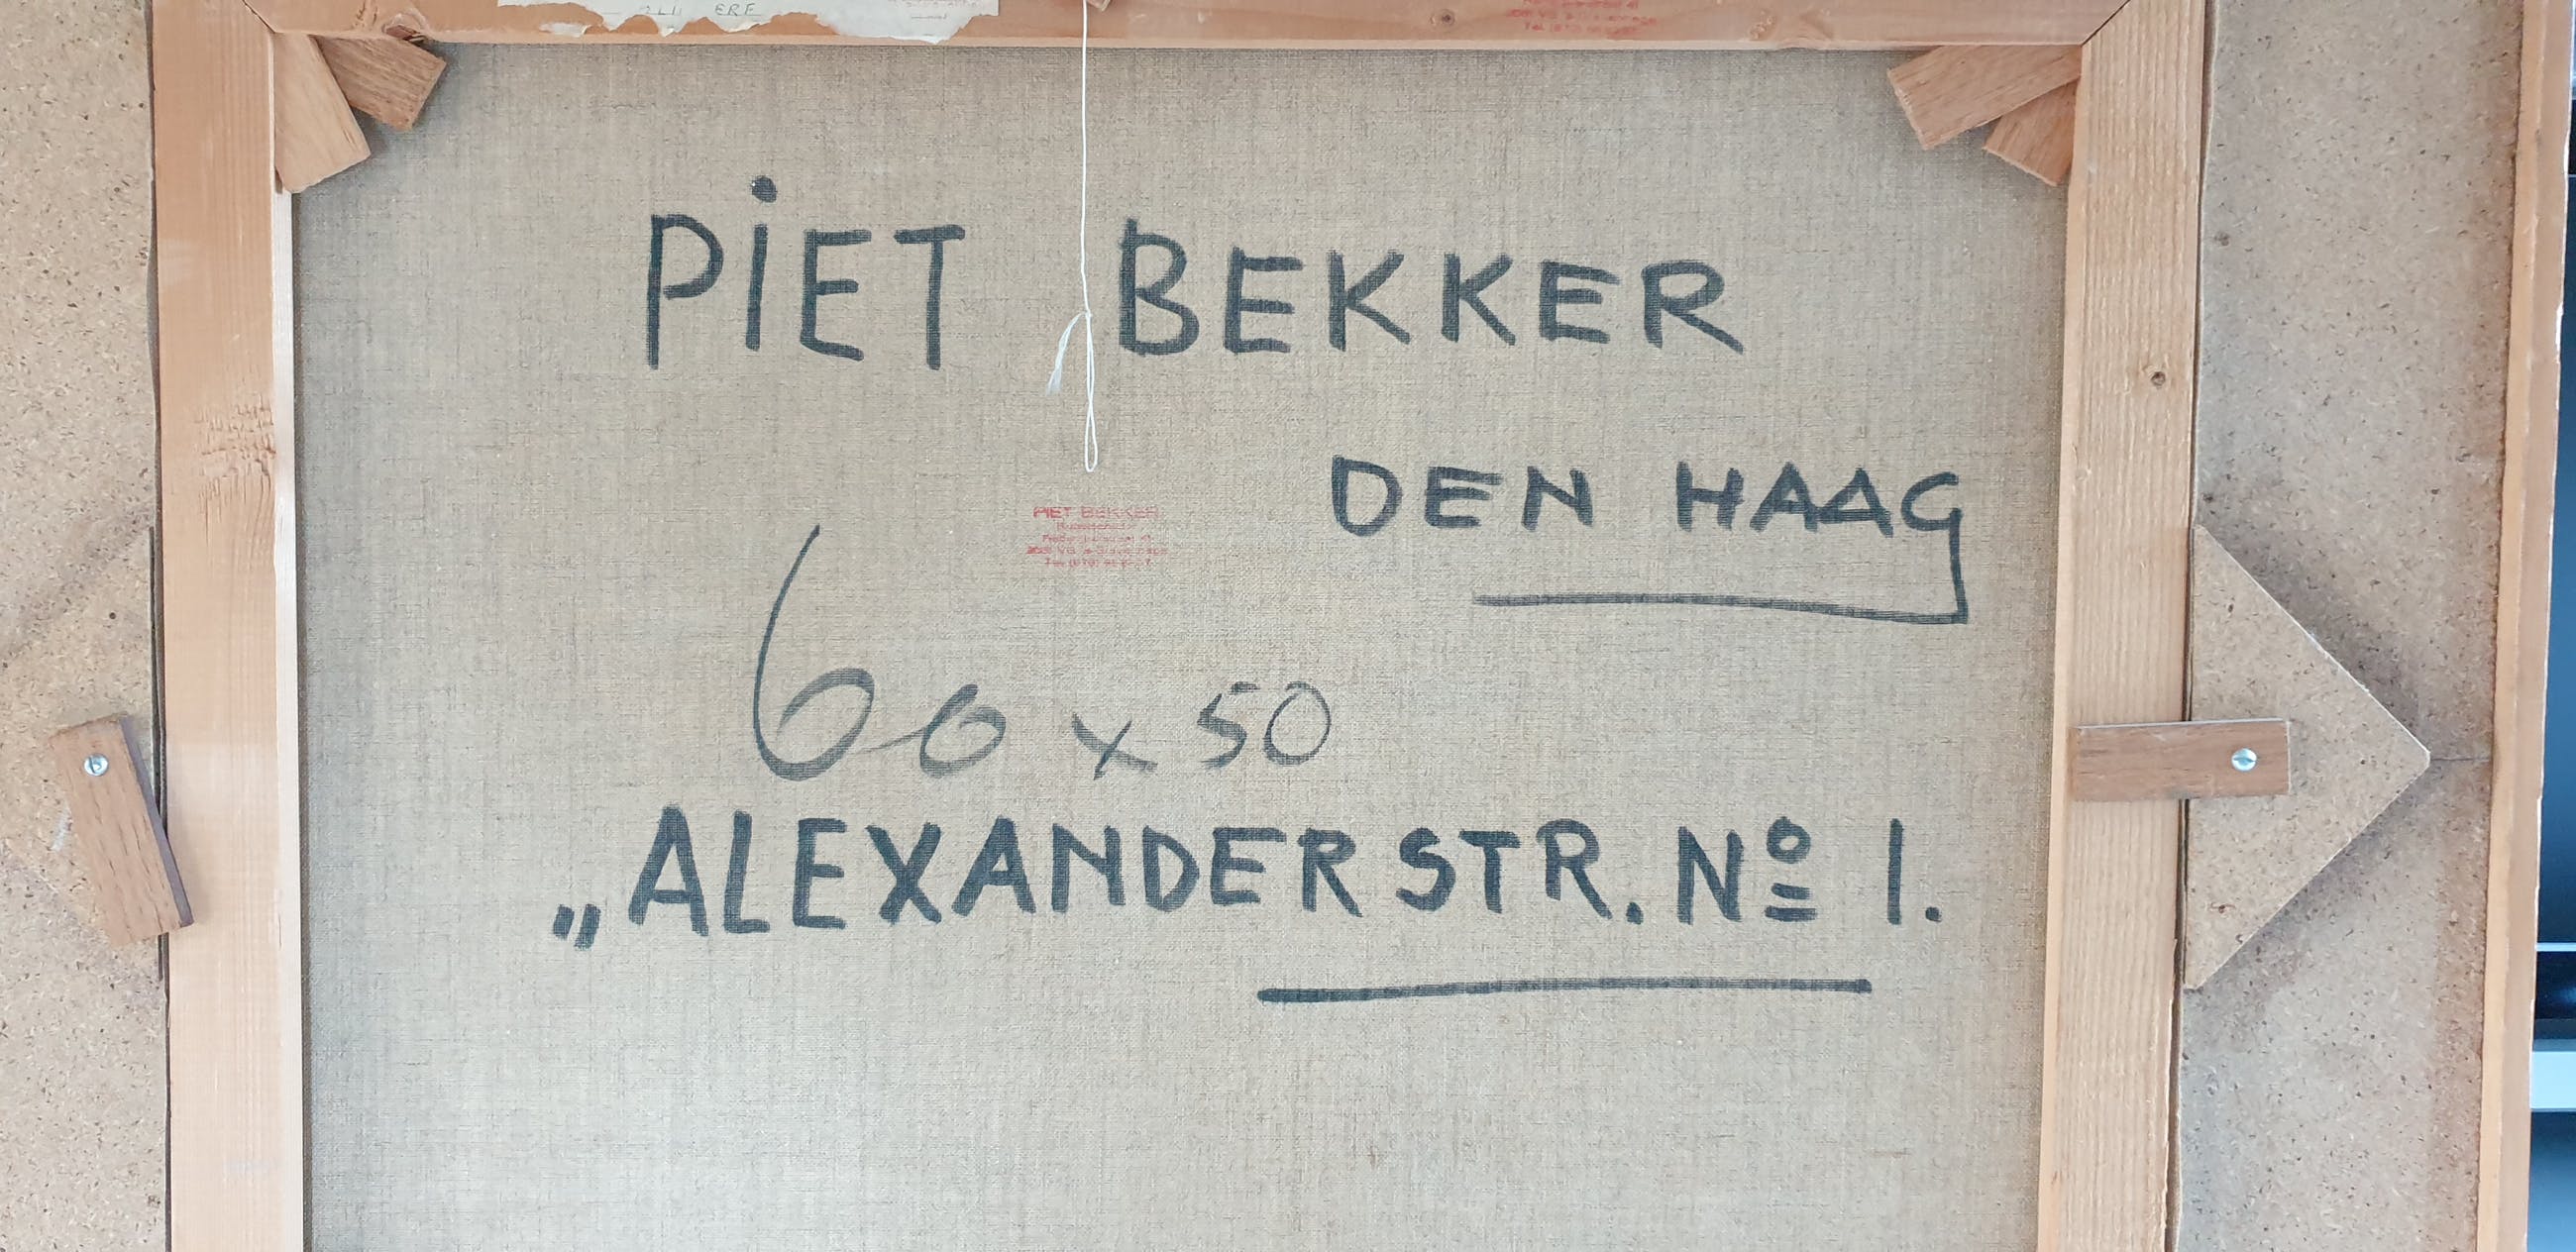 PiET BEKKER
DEN HAAG
PIET BEKKER
60 x 50
„ALEXANDERSTR. Nº 1.